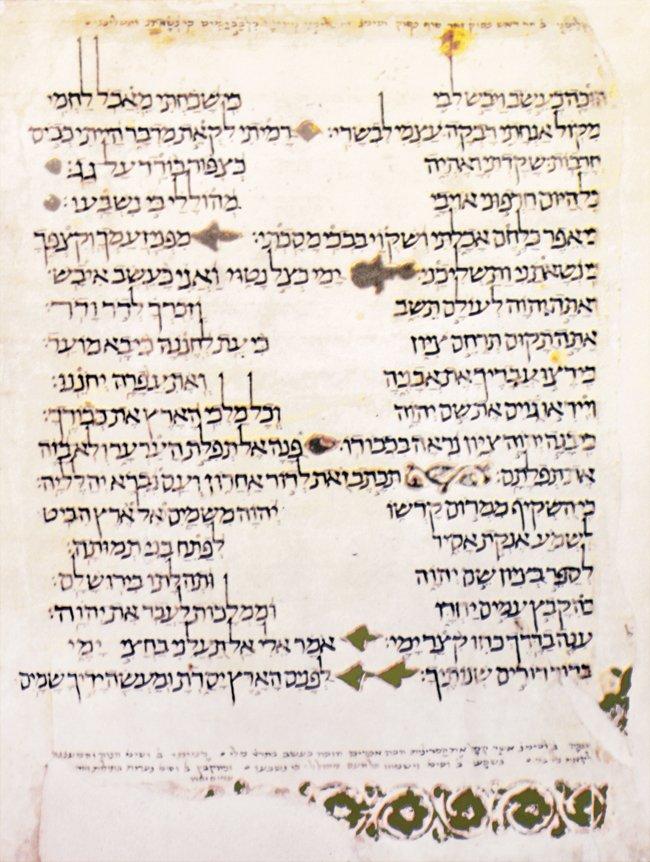 הוכה כעשב ויבש לבי כי שכחתי מאכל לחמי
מקול אנחתי דבקה עצמי לבשרי: דמיתי לקאת מדבר הייתי ככוס
חרבות: שקדתי ואהיה כצפור בודד על גג:
כל היום חרפוני אויבי מהוללי בי נשבעו:
כי אפר כלחם אכלתי ושקוי בבכי מסכתי: מפני זעמך וקצפך
כי נשאתני ותשליכני: ימי כצל נטוי ואני כעשב איבש:
ואתה יהוה לעולם תשב וזכרך לדר ודר:
אתה תקום תרחם ציון כי עת לחננה כי בא מועד:
כי רצו עבדיך את אבניה ואת עפרה יחננו:
וייראו גוים את שם יהוה וכל מלכי הארץ את כבודך:
כי בנה יהוה ציון נראה בכבודו: פנה אל תפלת הערער ולא בזה
את תפלתם: תכתב זאת לדור אחרון ועם נברא יהלל יה:
כי השקיף ממרום קדשו יהוה משמים אל ארץ הביט
לשמע אנקת אסיר לפתח בני תמותה:
לספר בציון שם יהוה ותהלתו בירושלם:
בהקבץ עמים יחדו וממלכות לעבד את יהוה:
ענה בדרך כחו קצר ימי: אמר אלי אל תעלני בחצי ימי
בדור דורים שנותיך: לפנים הארץ יסדת ומעשה ידיך שמים